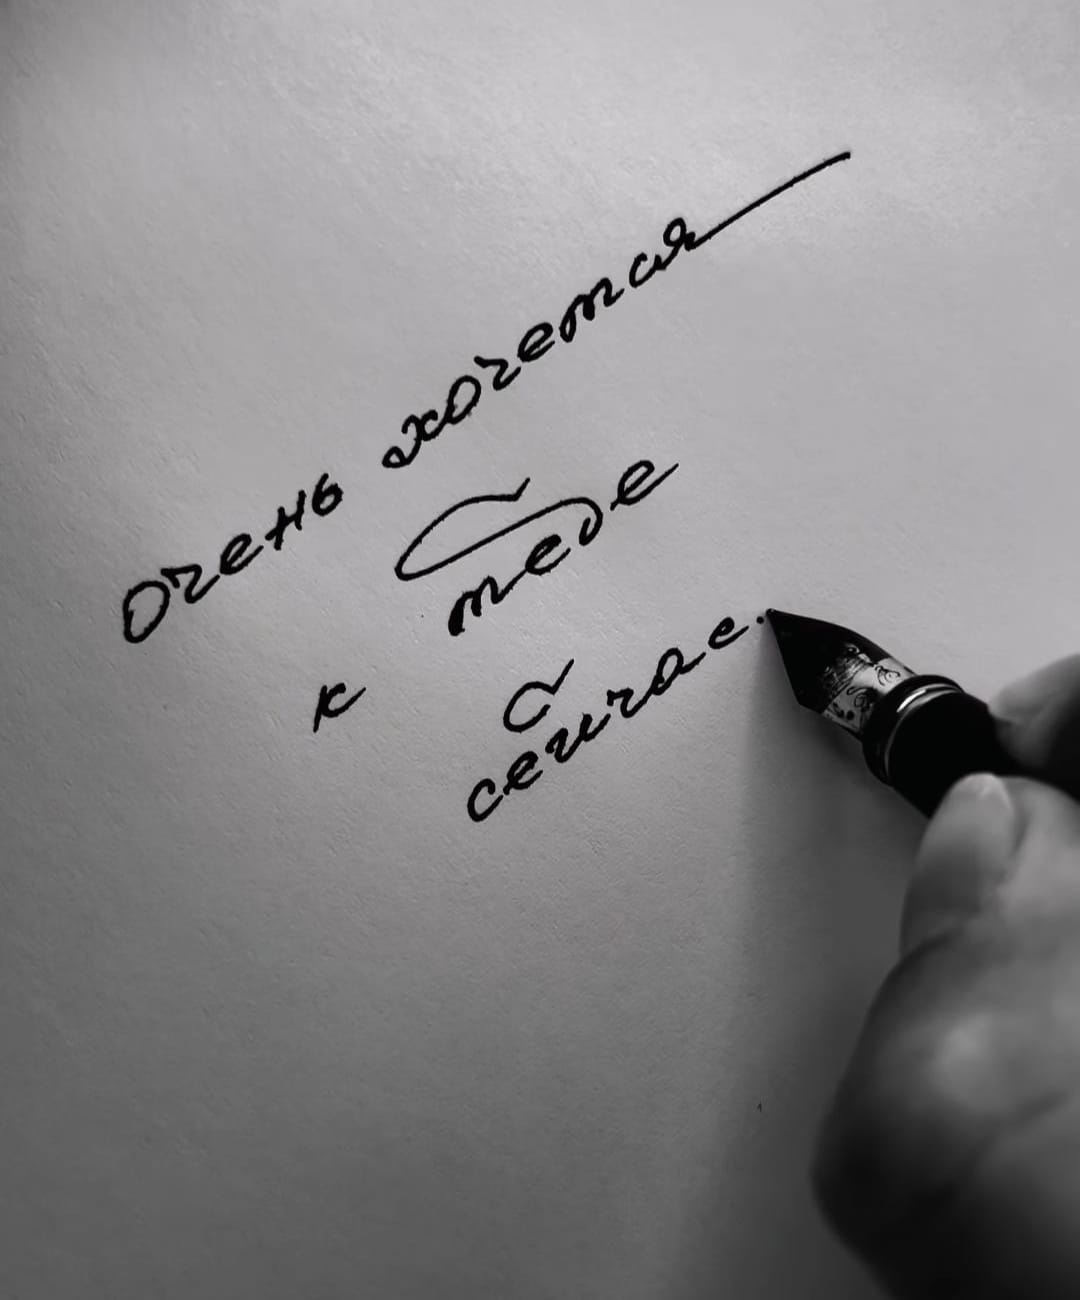 Очень хочется
к тебе
сейчас.